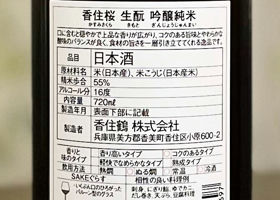 香住桜 生酛 吟醸純米
かすみざくら きもと ぎんじょうじゅんまい
口に含むと穏やかで上品な香りが広がり、コクのある旨味とやわらかな
酸味のバランスが良く、食材の旨さを一層引き立ててくれる逸品です。
日本酒
原材料名 米(日本産)、米こうじ(日本産米)
精米歩合 55%
アルコール分 16度
内容量 720ml
製造年月 表面下部に記載
製造者 香住鶴 株式会社
兵庫県美方郡香美町香住区小原600-2
香りと味のタイプ
香り高いタイプ コクのあるタイプ
軽快でなめらかなタイプ 熟成タイプ
飲み方 熱燗 ぬる燗 常温
SAKEぐらす 相性の良い料理例
いくぶん口のひろがった
バルーン型のグラス